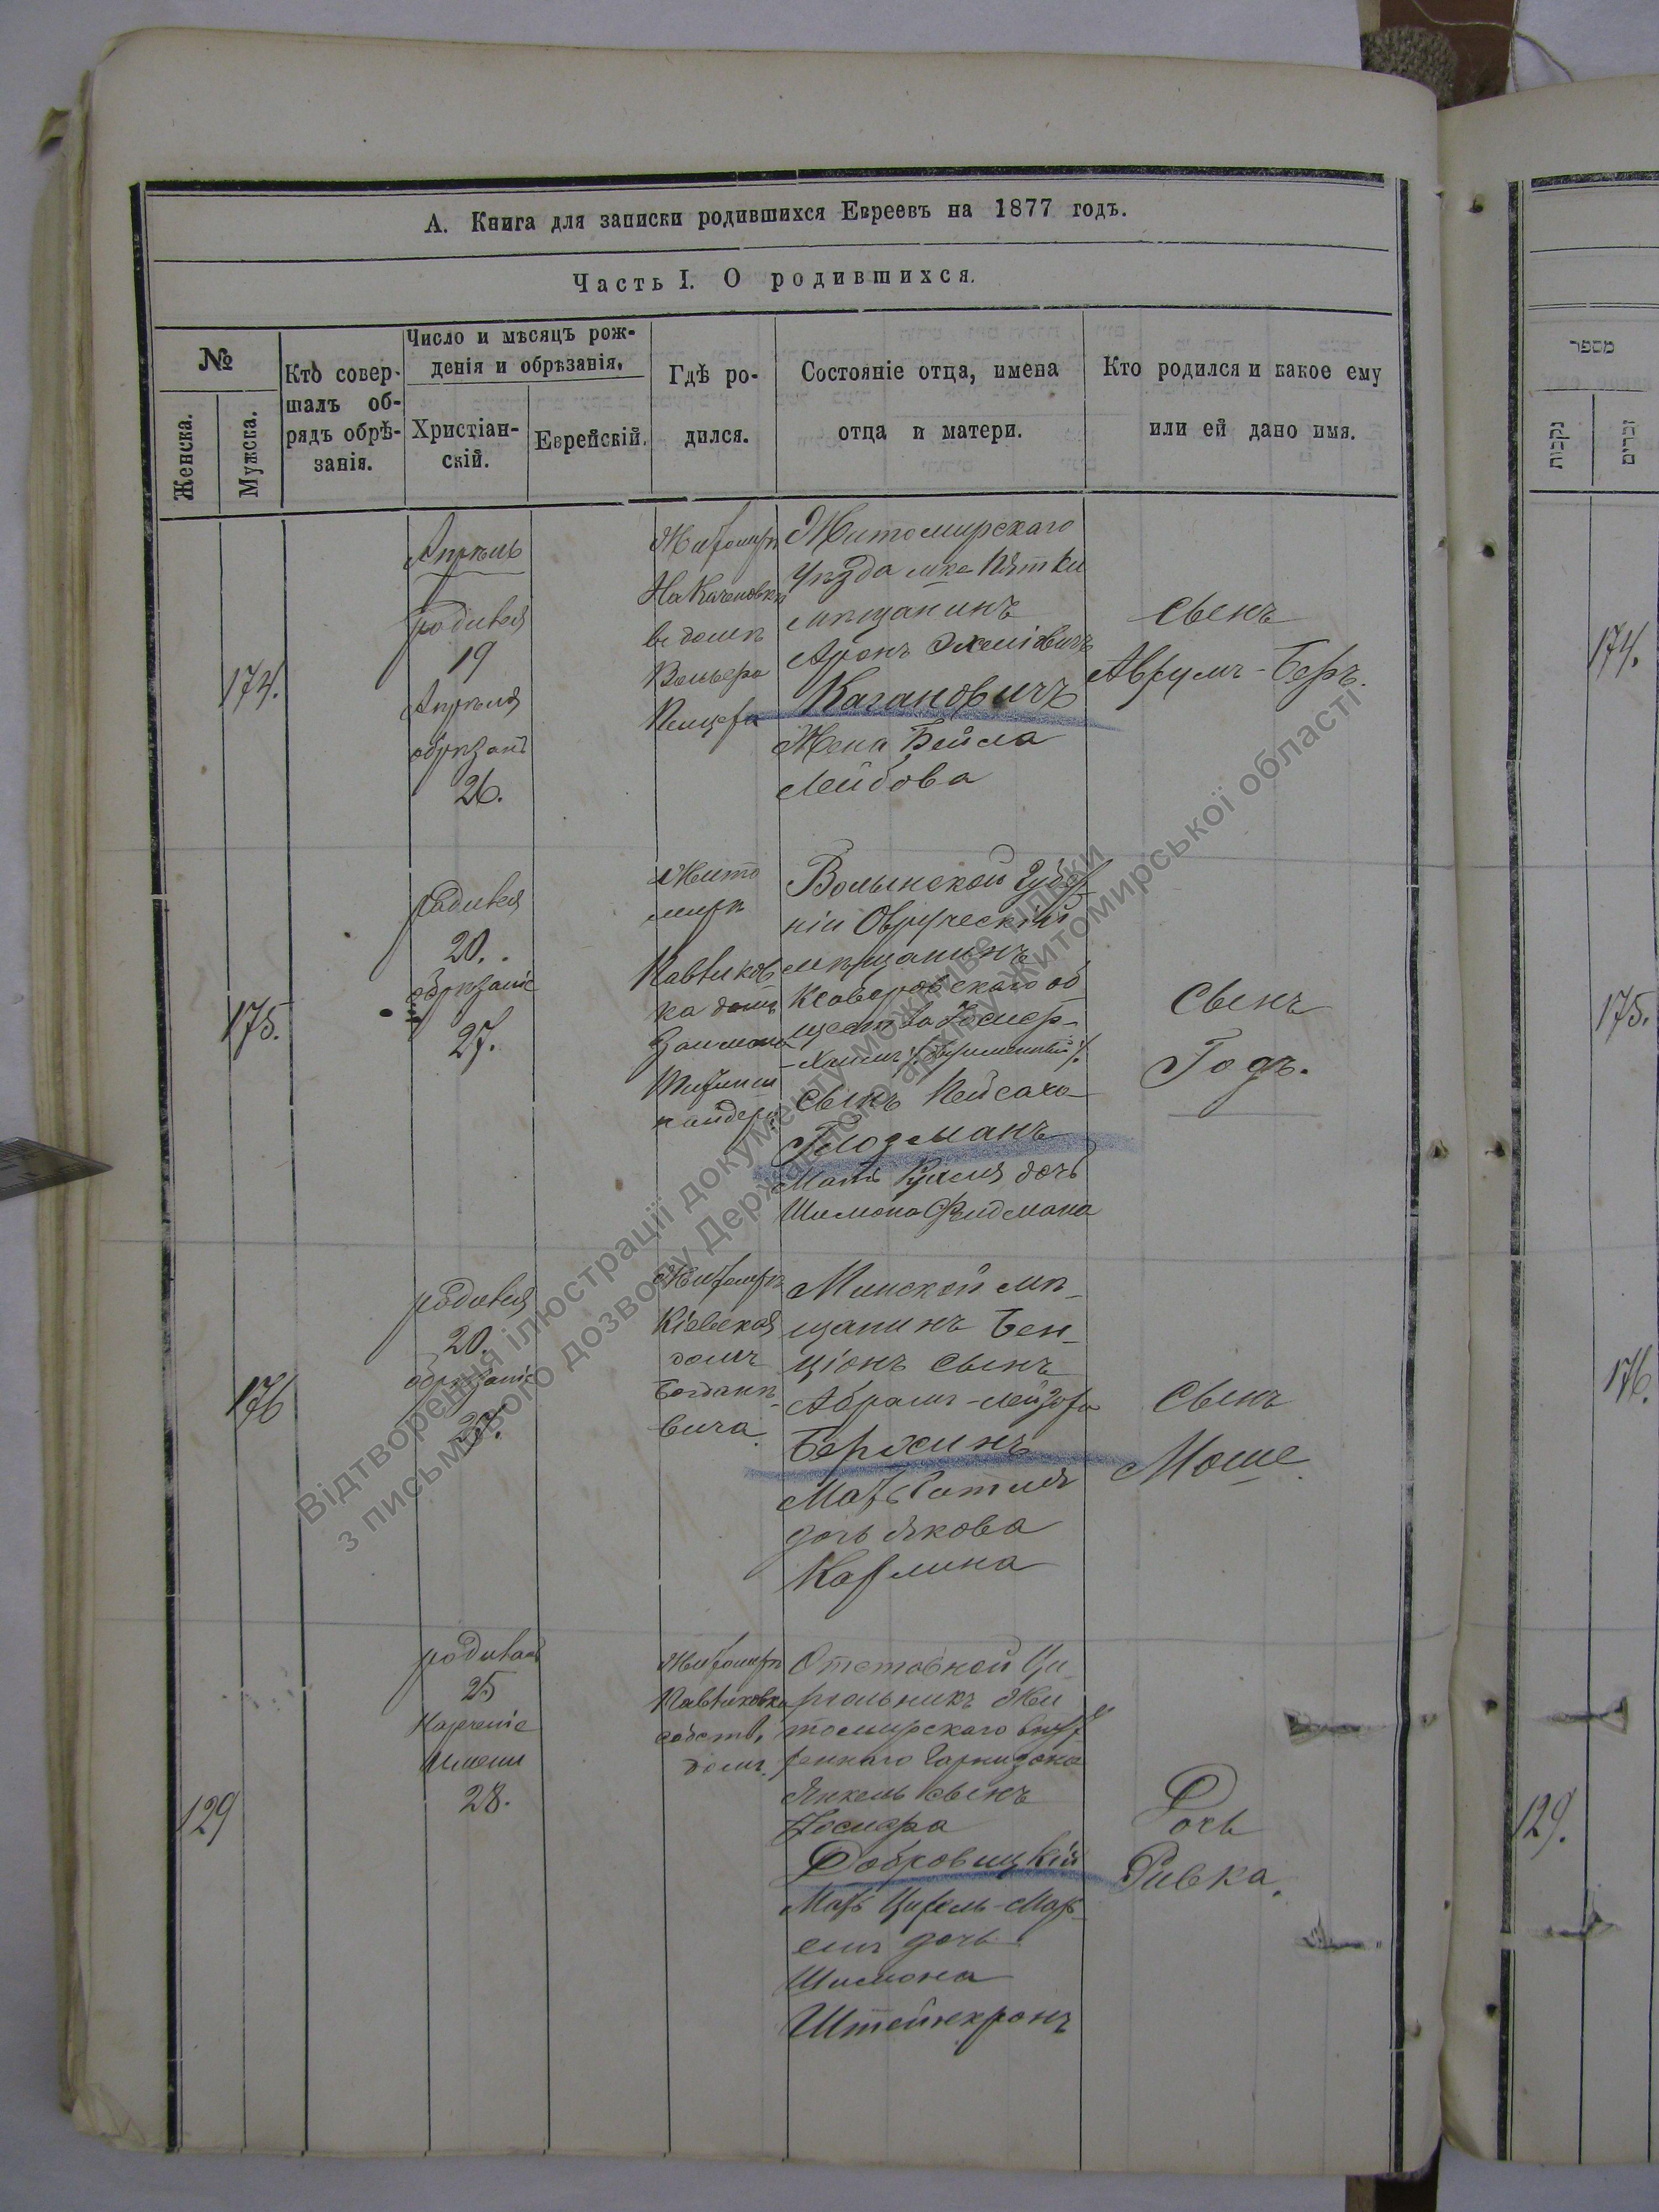 А. Книга для записки родившихся Евреевъ на 1877 годъ.
Часть I. О родившихся.
№
Женска.
Мужска.
Кто совер-
шалъ об-
рядъ обрѣ-
занія.
Число и мѣсяцъ рож-
денія и обрѣзанія.
Христіан-
скій.
Еврейскій.
Гдѣ ро-
дился.
Состояніе отца, имена
отца и матери.
Кто родился и какое ему
или ей дано имя.
174.
Апрѣль
родився
19
Апрѣля
обрѣзанъ
26.
Житомирѣ
На Каченовкѣ
въ домѣ
Житомирскаго
Уѣзда мка Пятки
мѣщанинъ
Аронъ
Кагановичъ
Жена Бейла
Лейбова
сынъ
Аврумъ-Беръ.
175.
родився
20.
обрѣзаніе
27.
Жито
мирѣ
Павликов
ка домъ
Волынской Губер-
ніи Овруческій
мѣщанинъ
Ксаверовскаго об
щества Іосиф-
Хаимъ
сынъ Пейсаха
Глозманъ
Мать Рухля дочь
Шимона Фридмана
Сынъ
Годъ.
176
родився
20.
обрѣзаніе
27.
Житомирѣ
Кіевская
домъ
Богдане-
вича.
Минской мѣ-
щанинъ Бен-
ціонъ сынъ
Абрамъ-Лейзора
Берхинъ
Мать
дочь Якова
Карлина
сынъ
Моше.
129
родилась
25
Нареченіе
имени
28.
Житомирѣ
Павликовка
собств.
домъ.
Отставной Ци-
рюльникъ Жи
томирскаго внут-
реннаго Гарнизона
Янкель сынъ
Добровицкій
Мать
дочь
Шимона
Штейнкронъ
Дочь
Ривка.
מספר
נקבות
זכרים
174.
175.
176.
129.
Відтворення ілюстрації документу можливе тільки
з письмового дозволу Державного архіву Житомирської області